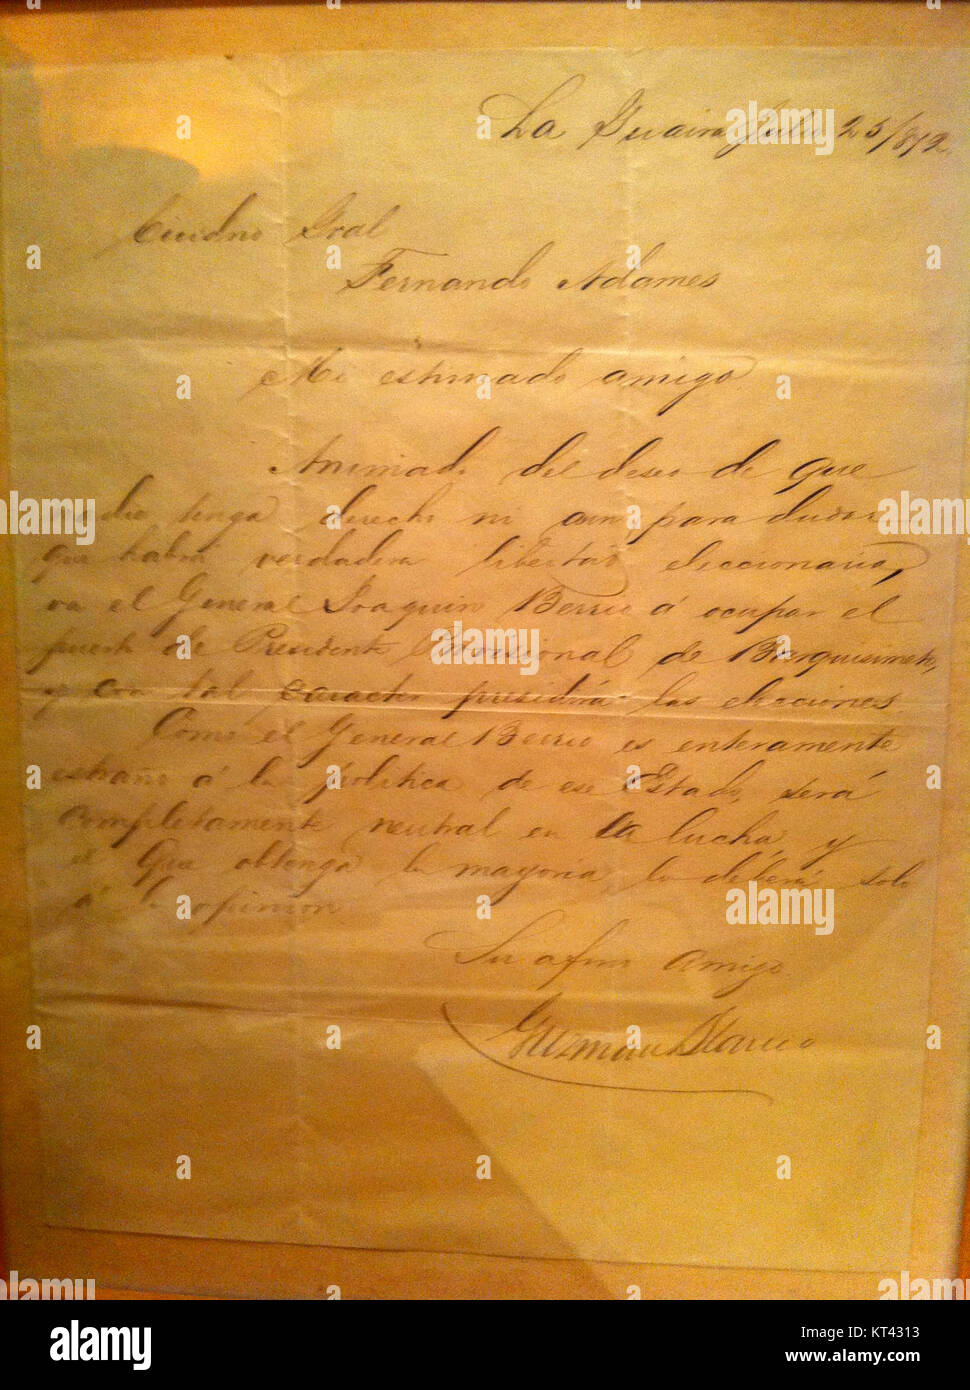 La Guaira Julio 25/872
Ciudno Gral
Fernando Adames
Mi estimado amigo
Animado del deseo de que
nadie tenga derecho ni aun para dudar
que habrá verdadera libertad eleccionaria,
va el General Joaquin Berrio á ocupar el
puesto de Presidente Provisional de Barquisimeto,
y con tal caracter presidirá las elecciones
Como el General Berrio es enteramente
estraño á la politica de ese Estado, será
completamente neutral en la lucha, y
el que obtenga la mayoria la deberá solo
á la opinion
Su afmo amigo
Guzman Blanco
alamy
Image ID: KT4313
www.alamy.com